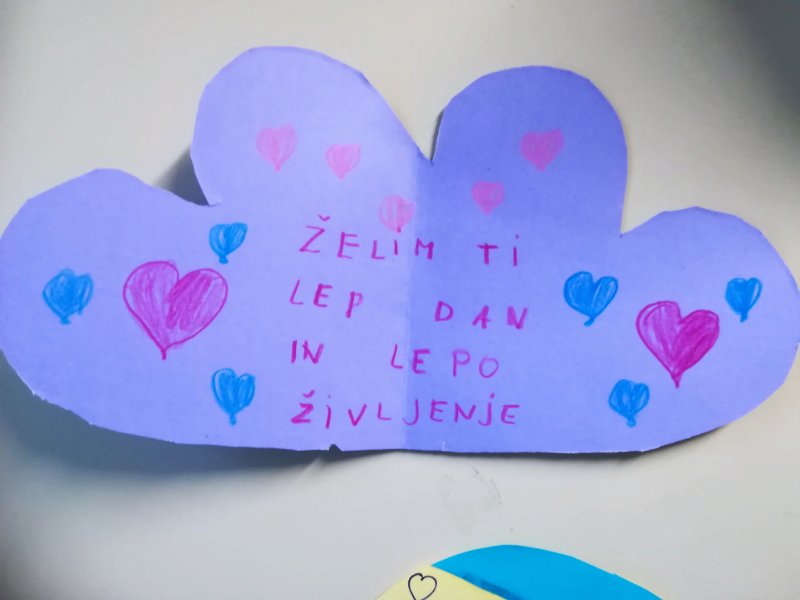 ŽELIM TI
LEP DAN
IN LEPO
ŽIVLJENJE